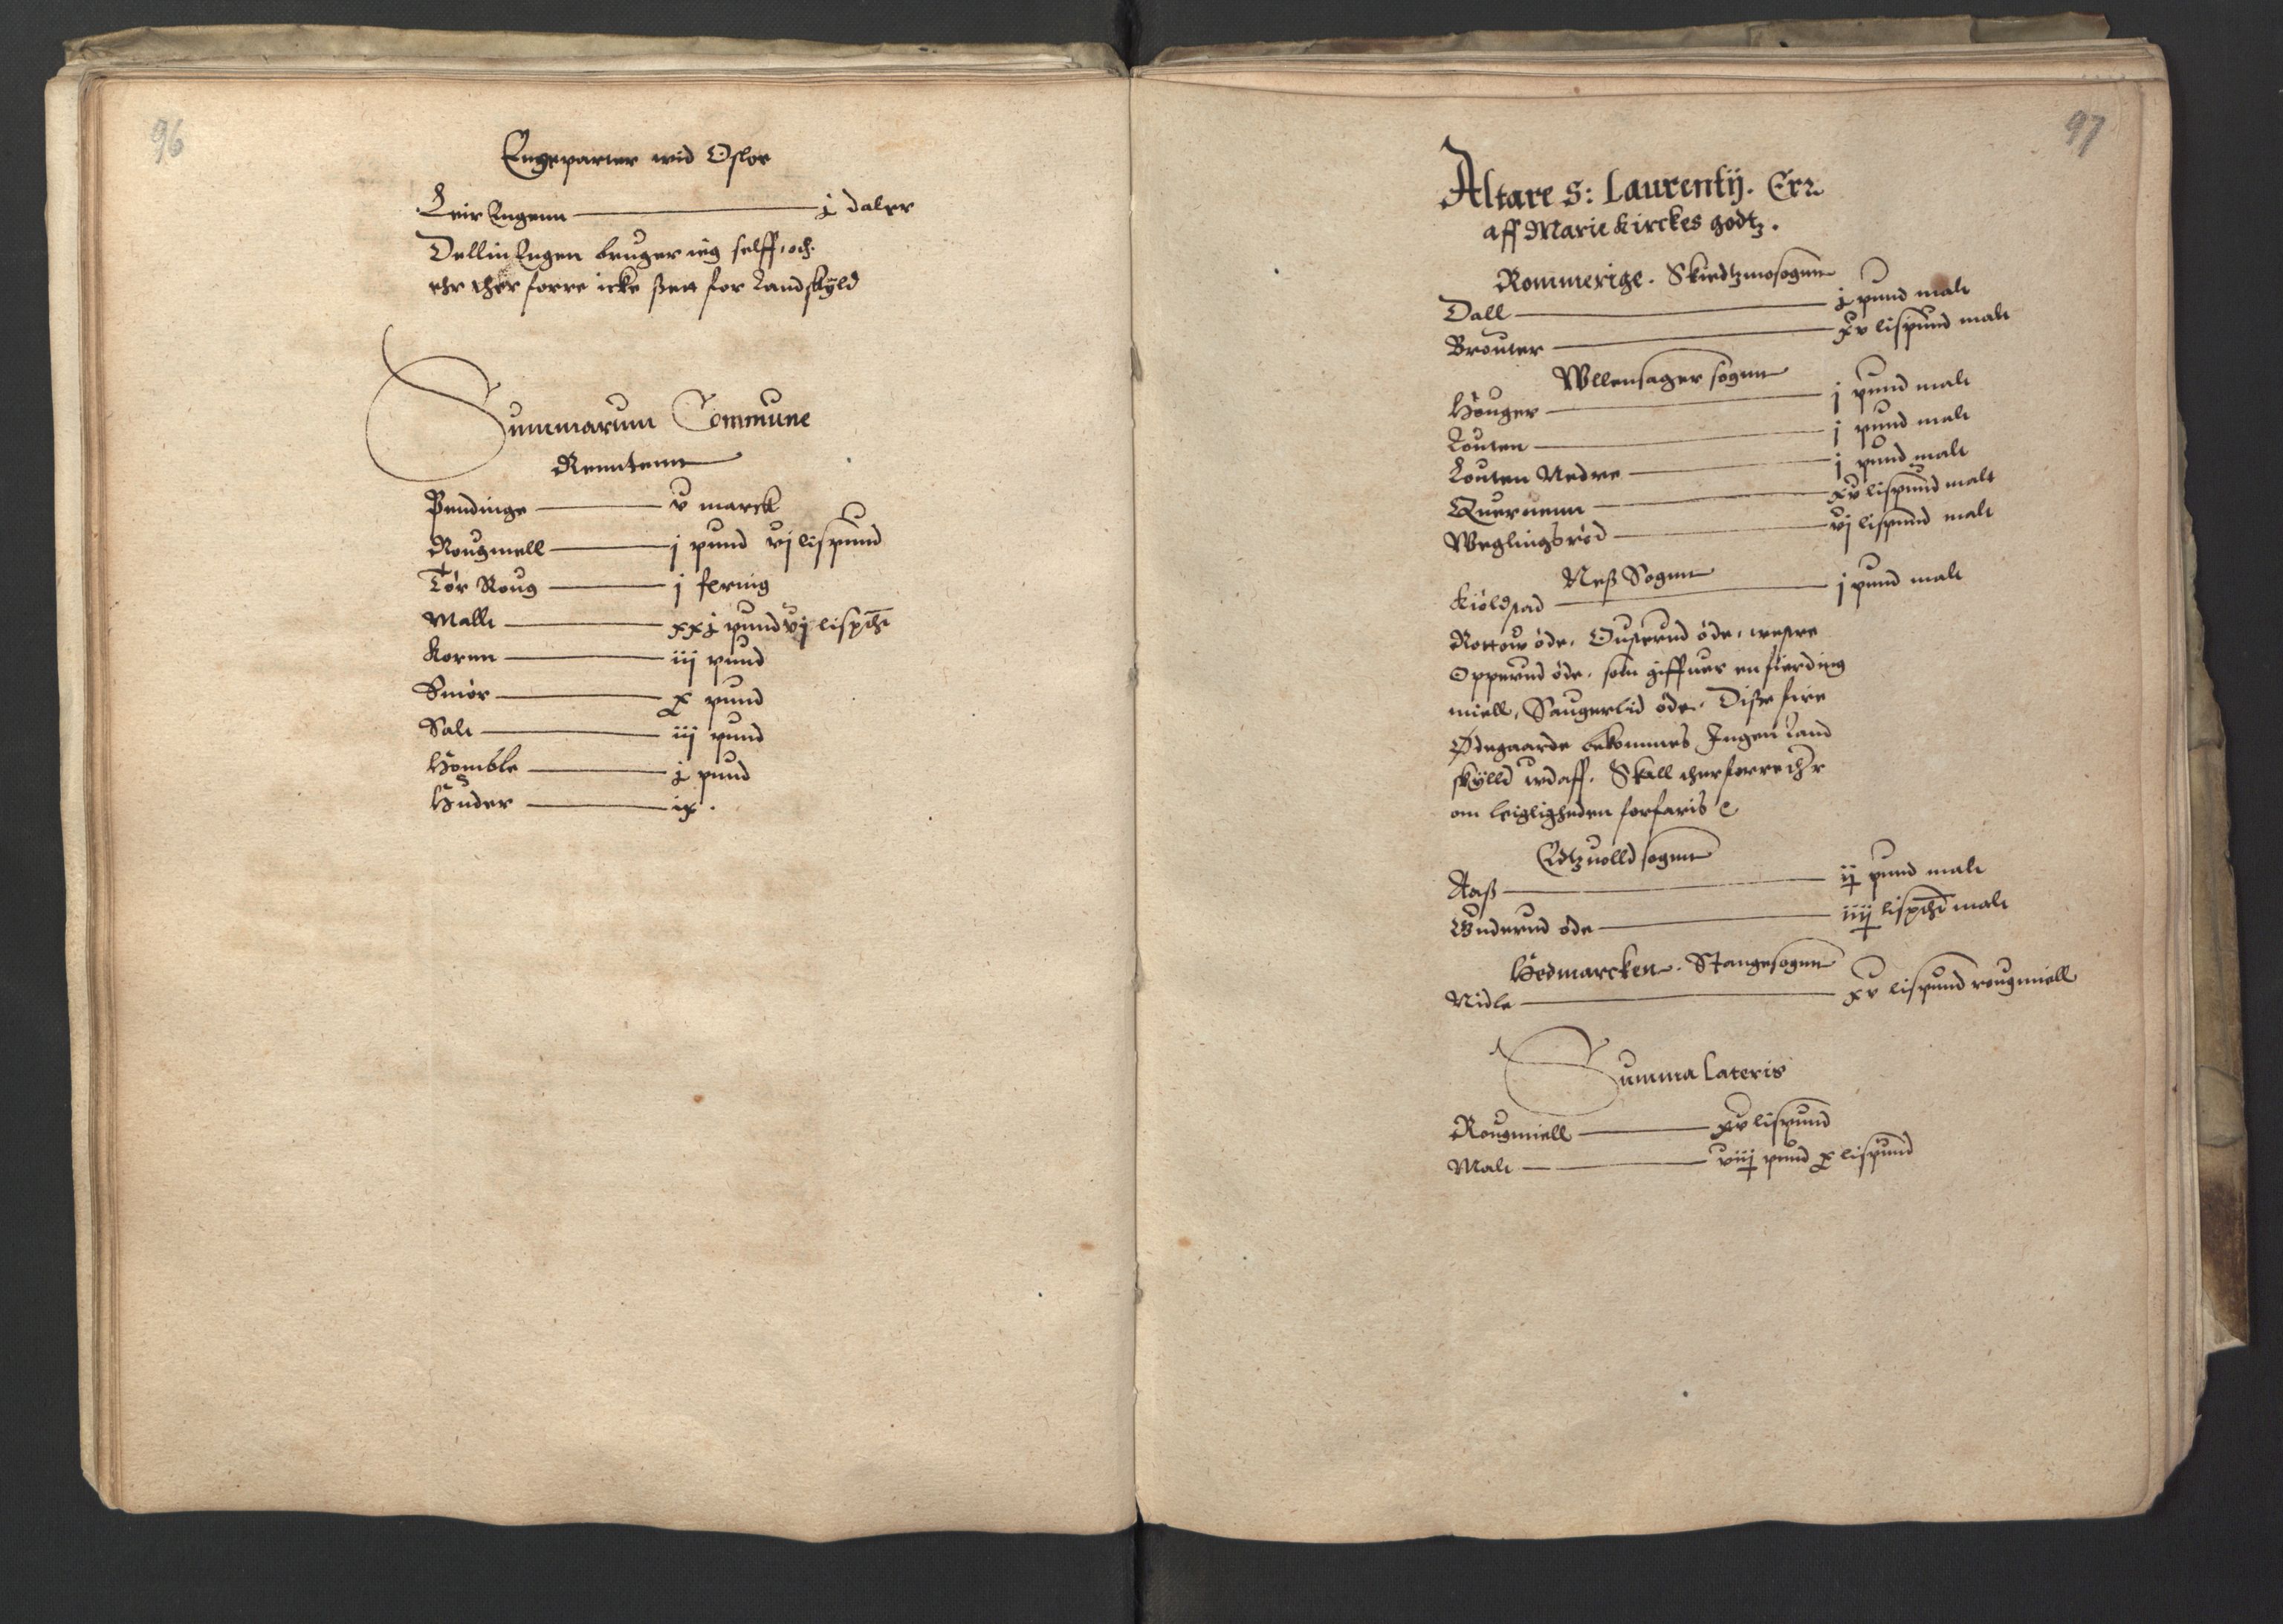 96
Engeparter wid Osloe
Leir Engenn — j daler
Dellin Engen bruger ieg selff, och
ehr ther forre icke ßett for Landskyld
Summarum Commune
Renntenn
Pendinge — v marck
Rougmell — j pund vj lispund
Tør Roug — j fering
Mallt — xxj pund vj lispd
Kornn — iij pund
Smør — x pund
Salt — iij pund
Homble — j pund
Huder — ix.
97
Altare S: Laurentij. Er
aff Marie kirckes godtz.
Rommerige. Skiedtzmosognn
Dall — j pund malt
Brouter — xv lispund malt
Wllensager sognn
Houger — j pund malt
Louten — j pund malt
Louten Nedre — j pund malt
Quernenn — xv lispund malt
Weglingsrød — vj lispund malt
Neß Sognn
Kiølstad — j pund malt
Rottow øde. Ousterud øde, westre
Opperud øde. som giffuer en fierding
miell, Saugerlid øde. Disse fire
Ødegaarde bekommes Ingen Land
skylld wdaff. Skall therforre ther
om leiligheden forfaris
Edtzuolld sognn
Aaß — ij pund malt
Wnderud øde — iiij lispd malt
Hedmarcken. Stangesognn
Nidle — xv lispund rougmiell
Summa Lateris
Rougmiell — xv lispund
Malt — viij pund x lispund